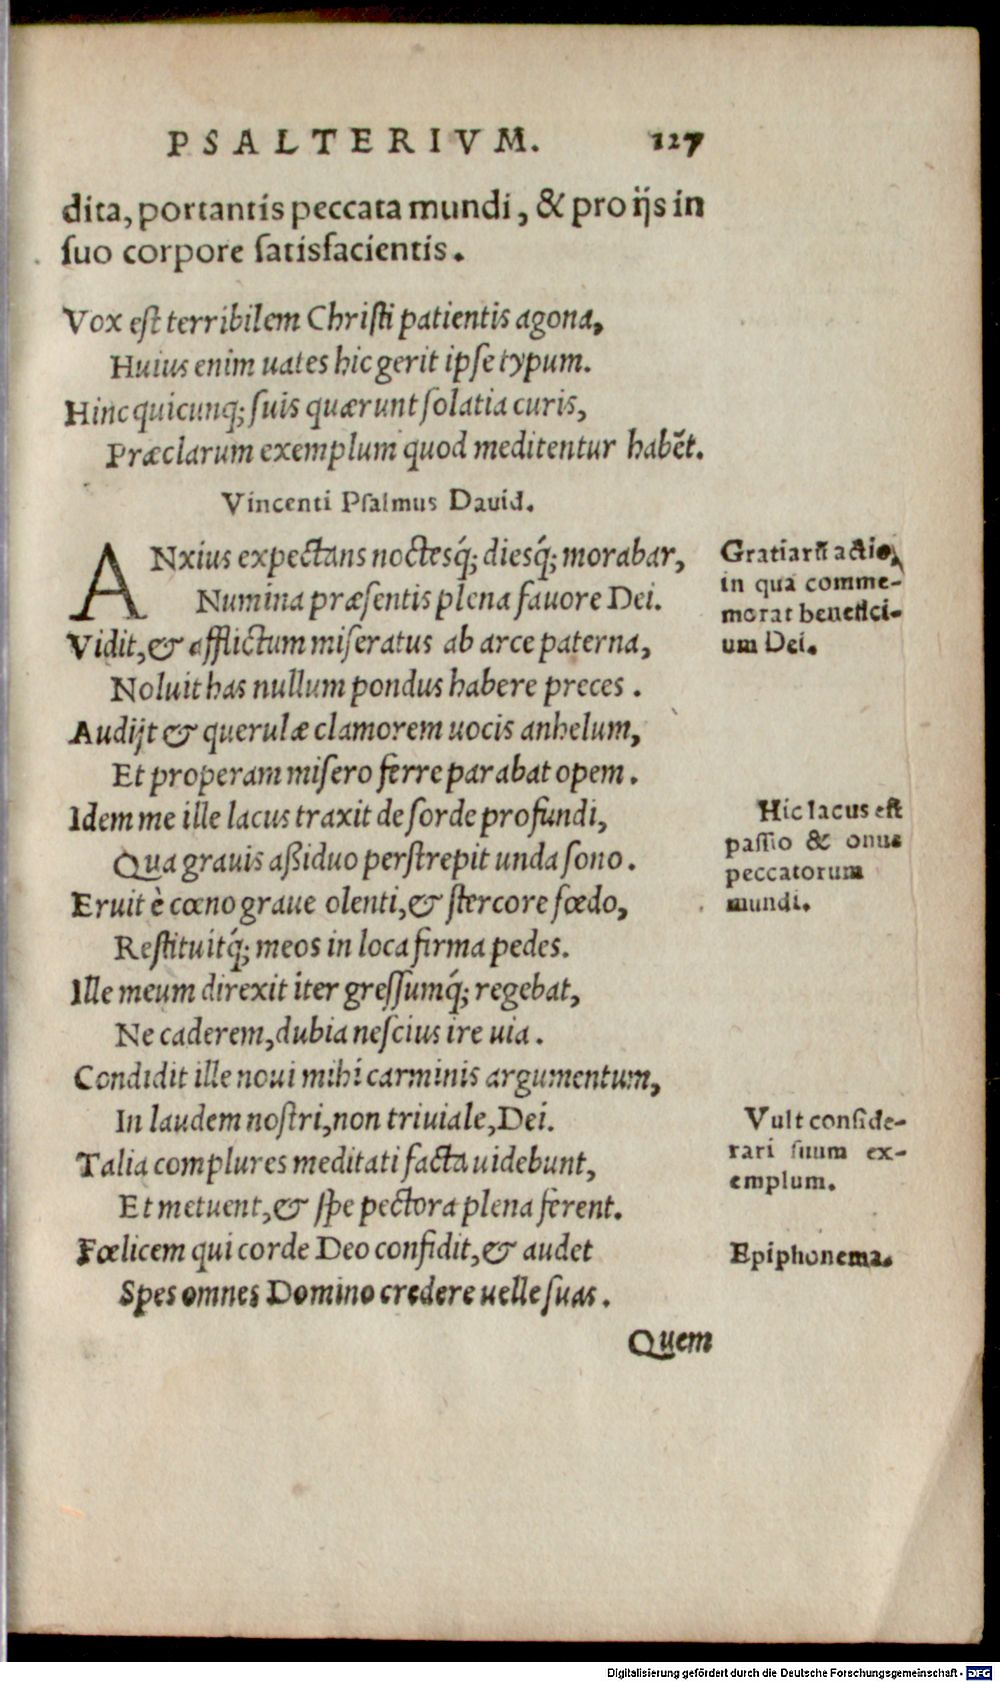 PSALTERIVM. 127
dita, portantis peccata mundi, & pro ijs in
ſuo corpore ſatisfacientis.
Vox eſt terribilem Chriſti patientis agona,
Huius enim uates hic gerit ipſe typum.
Hinc quicunq; ſuis quærunt ſolatia curis,
Præclarum exemplum quod meditentur habẽt.
Vincenti Pſalmus Dauid.
ANxius expectans noctesq́; diesq́; morabar,
Numina præſentis plena fauore Dei.
Vidit, & afflictum miſeratus ab arce paterna,
Noluit has nullum pondus habere preces.
Audijt & querulæ clamorem uocis anhelum,
Et properam miſero ferre parabat opem.
Idem me ille lacus traxit de ſorde profundi,
Qua grauis aßiduo perſtrepit unda ſono.
Eruit è cœno graue olenti, & ſtercore fœdo,
Reſtituitq́; meos in loca firma pedes.
Ille meum direxit iter greſſumq́; regebat,
Ne caderem, dubia neſcius ire uia.
Condidit ille noui mihi carminis argumentum,
In laudem noſtri, non triuiale, Dei.
Talia complures meditati facta uidebunt,
Et metuent, & ſpe pectora plena ferent.
Fœlicem qui corde Deo confidit, & audet
Spes omnes Domino credere uelle ſuas.
Quem
Gratiarũ actio,
in qua comme-
morat benefici-
um Dei.
Hic lacus eſt
paſſio & onus
peccatorum
mundi.
Vult conſide-
rari ſuum ex-
emplum.
Epiphonema.
Digitalisierung gefördert durch die Deutsche Forschungsgemeinschaft - DFG